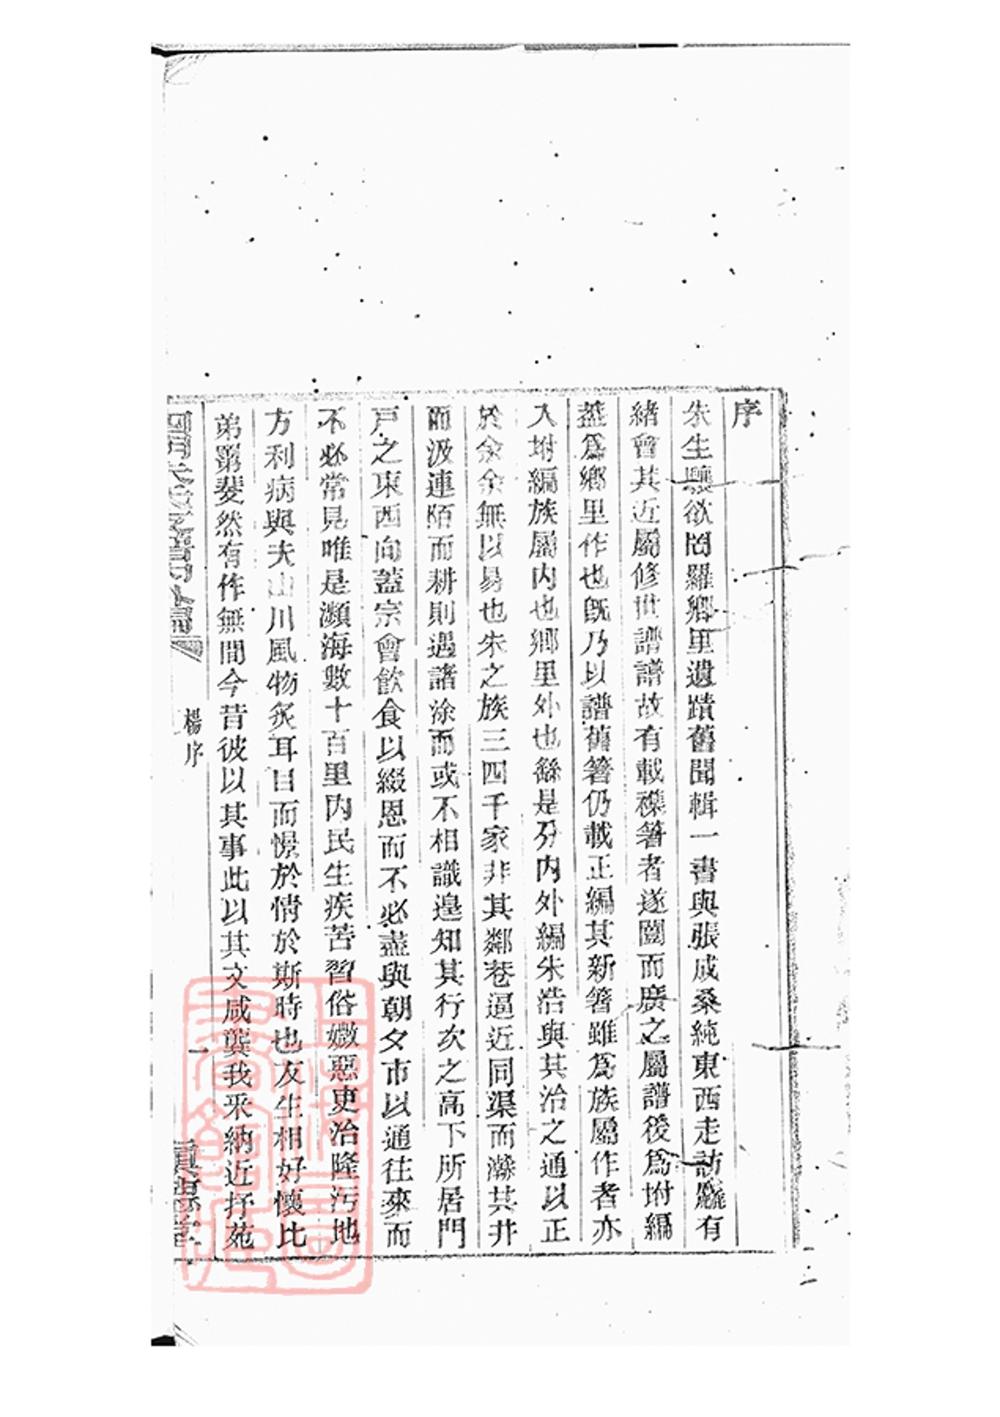 序
朱生驤欲罔羅鄉里遺蹟舊聞輯一書與張成桑純東西走訪麤有
緒會其近屬修世譜譜故有載襍箸者遂圖而廣之屬譜後爲坿編
葢爲鄉里作也旣乃以譜舊箸仍載正編其新箸雖爲族屬作者亦
入坿編族屬內也鄉里外也繇是分內外編朱浩與其治之通以正
於余余無以易也朱之族三四千家非其鄰巷逼近同渠而瀚共井
而汲連陌而耕則遇諸涂而或不相識遑知其行次之高下所居門
戸之東西向蓋宗會飮食以綴恩而不必盡與朝夕市以通往來而
不必常見唯是瀕海數十百里內民生疾苦習俗媺惡吏治隆污地
方利病與夫山川風物炙耳目而憬於情於斯時也友生相好懷比
弟羣斐然有作無間今昔彼以其事此以其文咸龔我采納近抒苑
楊序
一